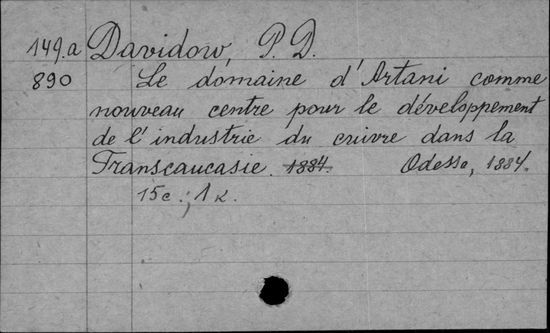 149.a Davidow, P. D.
890 Le domaine d'Artani comme
nouveau centre pour le développement
de l'industrie du cuivre dans la
Transcaucasie. 1884. Odessa, 1884.
15c.; 1 K.